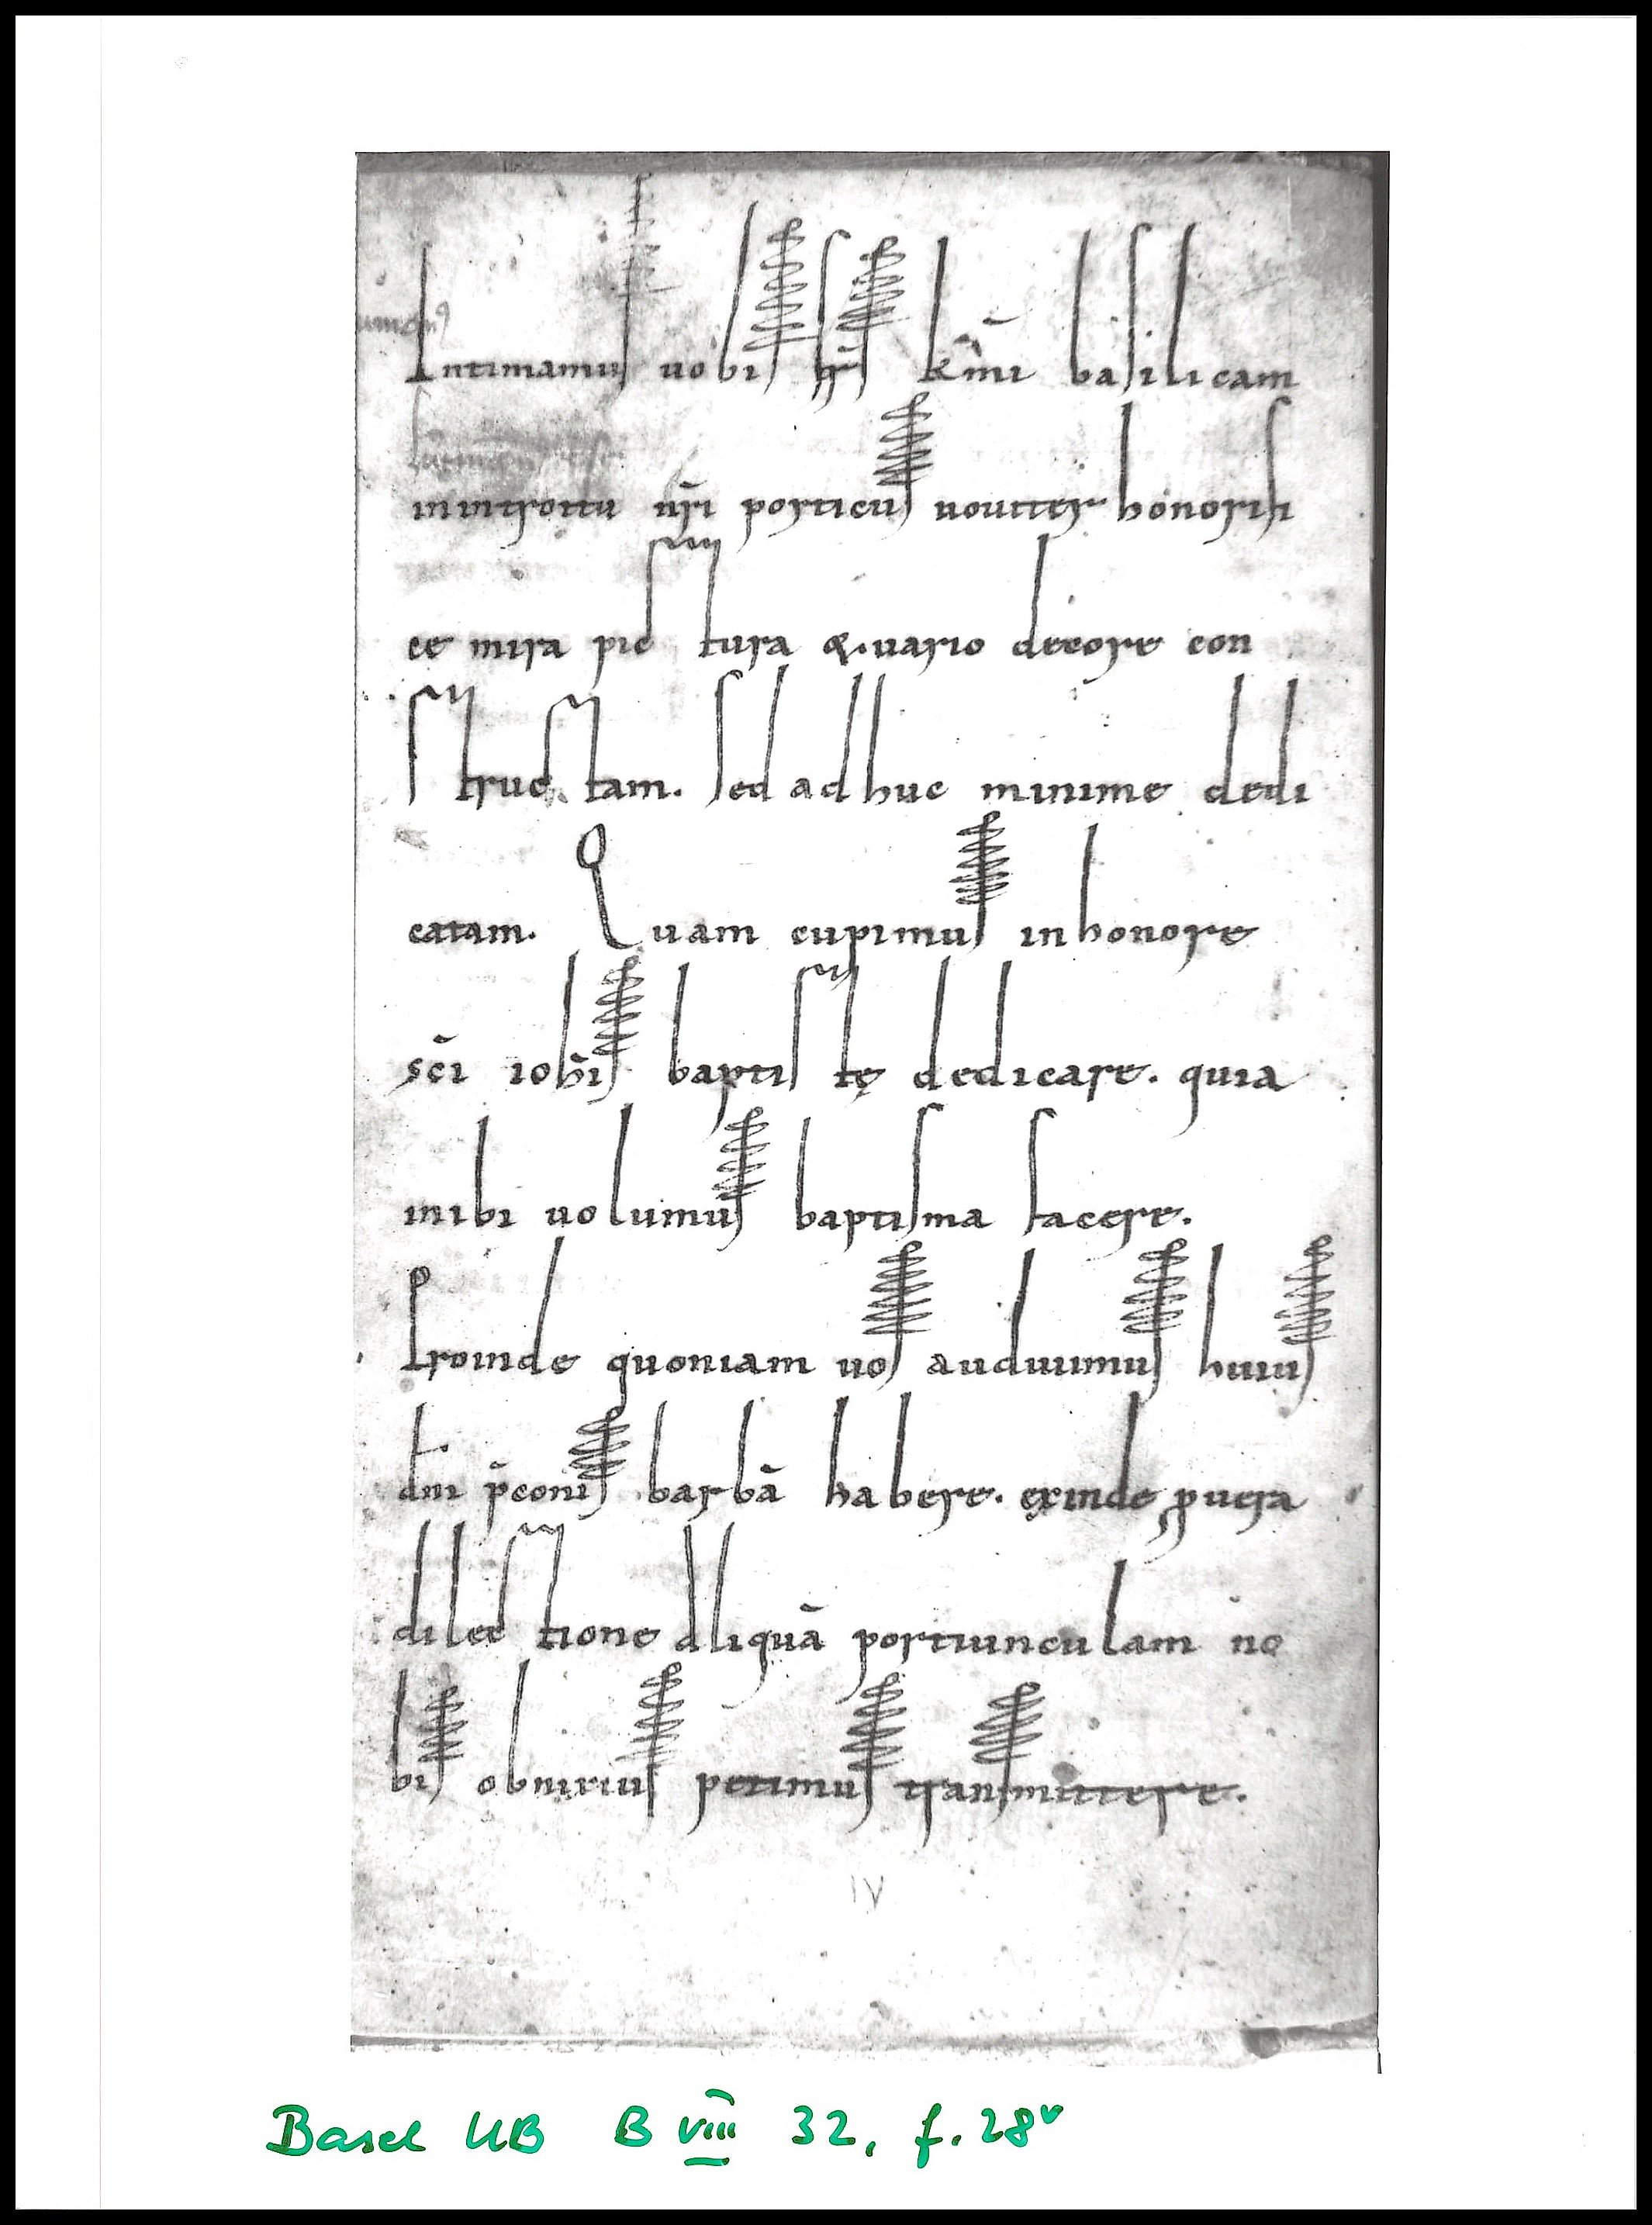 Intimamus uobis frs̄ km̄i basilicam
inintroitu nr̄i porticus nouiter honorifi
ce mira pictura &uario decore con
structam. sed adhuc minime dedi
catam. Quam cupimus inhonore
sc̄i ioh̄is baptistę dedicare. quia
inibi uolumus baptisma facere.
Proinde quoniam uos audiuimus huius
dn̄i p̄conis barbā habere. exinde ꝓuera
dilectione aliquā portiunculam no
bis obnixius petimus transmittere.
IV
Basel UB B VIII 32, f. 28v